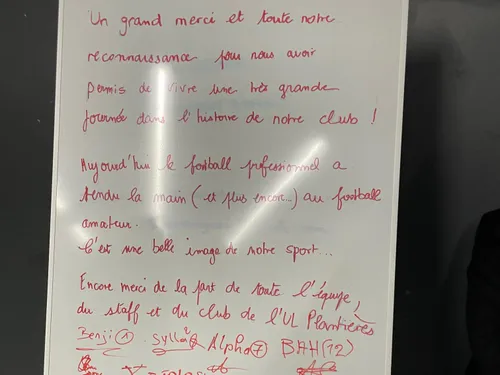 Un grand merci et toute notre
reconnaissance pour nous avoir
permis de vivre une très grande
journée dans l'histoire de notre club !
Aujourd'hui le football professionnel a
tendu la main (et plus encore...) au football
amateur.
C'est une belle image de notre sport...
Encore merci de la part de toute l'équipe,
du staff et du club de l'UL Plantières
Benji 1 Sylla Alpha 7 BAH (12)